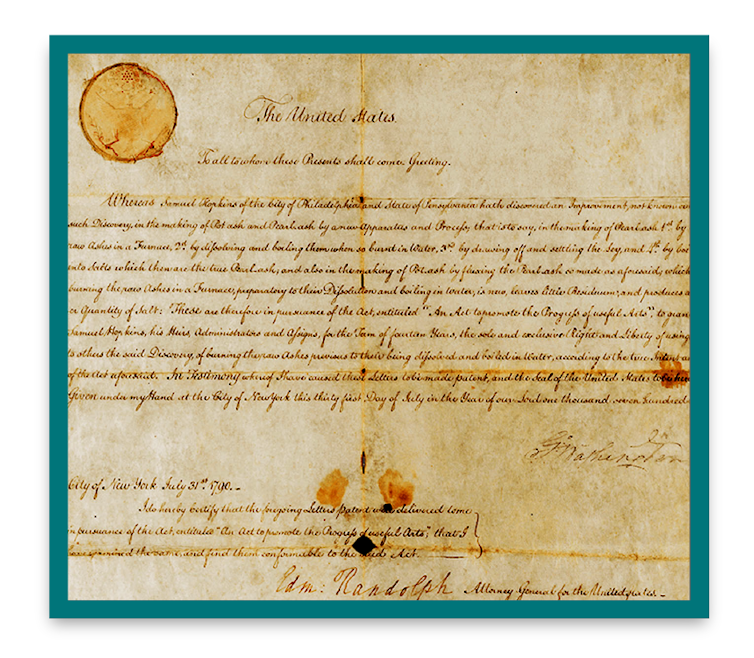 The United States.
To all to whom these Presents shall come, Greeting.
Whereas Samuel Hopkins of the City of Philadelphia and State of Pensylvania hath discovered an Improvement, not known
such Discovery, in the making of Pot ash and Pearl ash by a new Apparatus and Process; that is to say, in the making of Pearl ash 1st. by
raw Ashes in a Furnace, 2d. by dissolving and boiling them when so burnt in Water, 3rd. by drawing off and settling the Ley, and 4th. by boi
into Salts which then are the true Pearl ash; and also in the making of Pot ash by fluxing the Pearl ash so made as aforesaid; which
burning the raw Ashes in a Furnace, preparatory to their Dissolution and boiling in Water, is new, leaves little Residuum; and produces a
er Quantity of Salt: These are therefore in pursuance of the Act, entituled "An Act to promote the Progress of useful Arts", to gran
Samuel Hopkins, his Heirs, Administrators and Assigns, for the Term of fourteen Years, the sole and exclusive Right and Liberty of using
to others the said Discovery, of burning the raw Ashes previous to their being dissolved and boiled in Water, according to the true Intent
of the Act aforesaid. In Testimony whereof I have caused these Letters to be made patent, and the Seal of the United States to be
Given under my Hand at the City of New York this thirty first Day of July in the Year of our Lord one thousand seven hundred
G. Washington
City of New York July 31st. 1790. -
I do hereby Certify that the foregoing Letters patent were delivered to me
in pursuance of the Act, entituled "An Act to promote the Progress of useful Arts"; that I
have examined the same, and find them conformable to the said Act.
Edm: Randolph Attorney General for the United States -